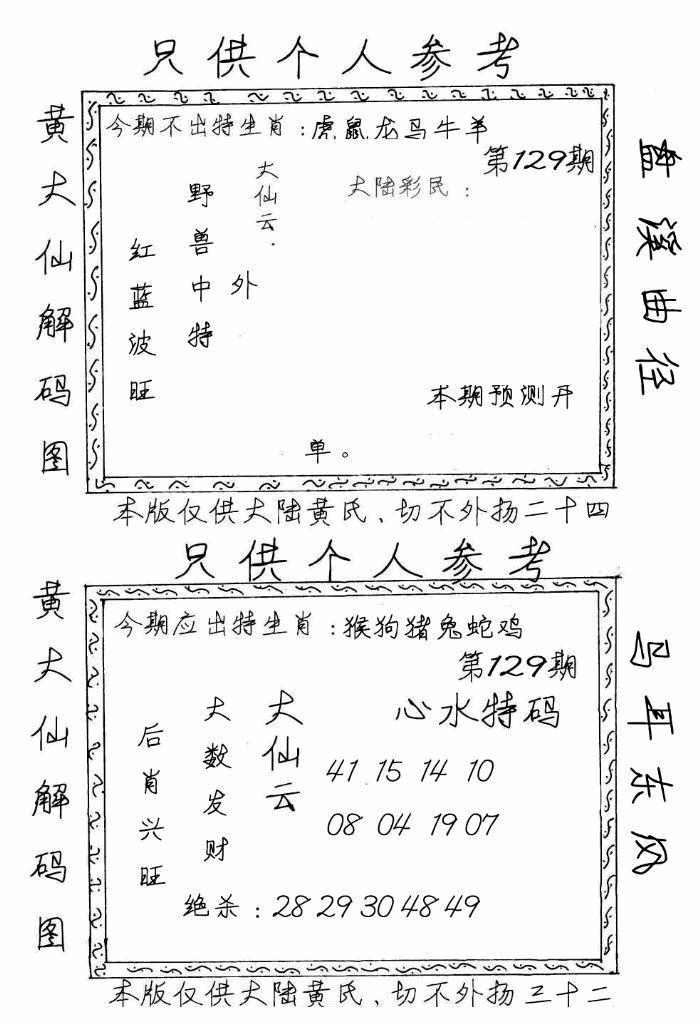 只供个人参考
黄大仙解码图
今期不出特生肖：虎鼠龙马牛羊
第129期
大陆彩民：
大仙云．
外
野兽中特
红蓝波旺
本期预测开
单。
曲径
本版仅供大陆黄氏、切不外扬二十四
只供个人参考
黄大仙解码图
今期应出特生肖：猴狗猪兔蛇鸡
第129期
心水特码
大仙云
大数发财
后肖兴旺
41 15 14 10
08 04 19 07
绝杀：28 29 30 48 49
马耳东风
本版仅供大陆黄氏、切不外扬三十二